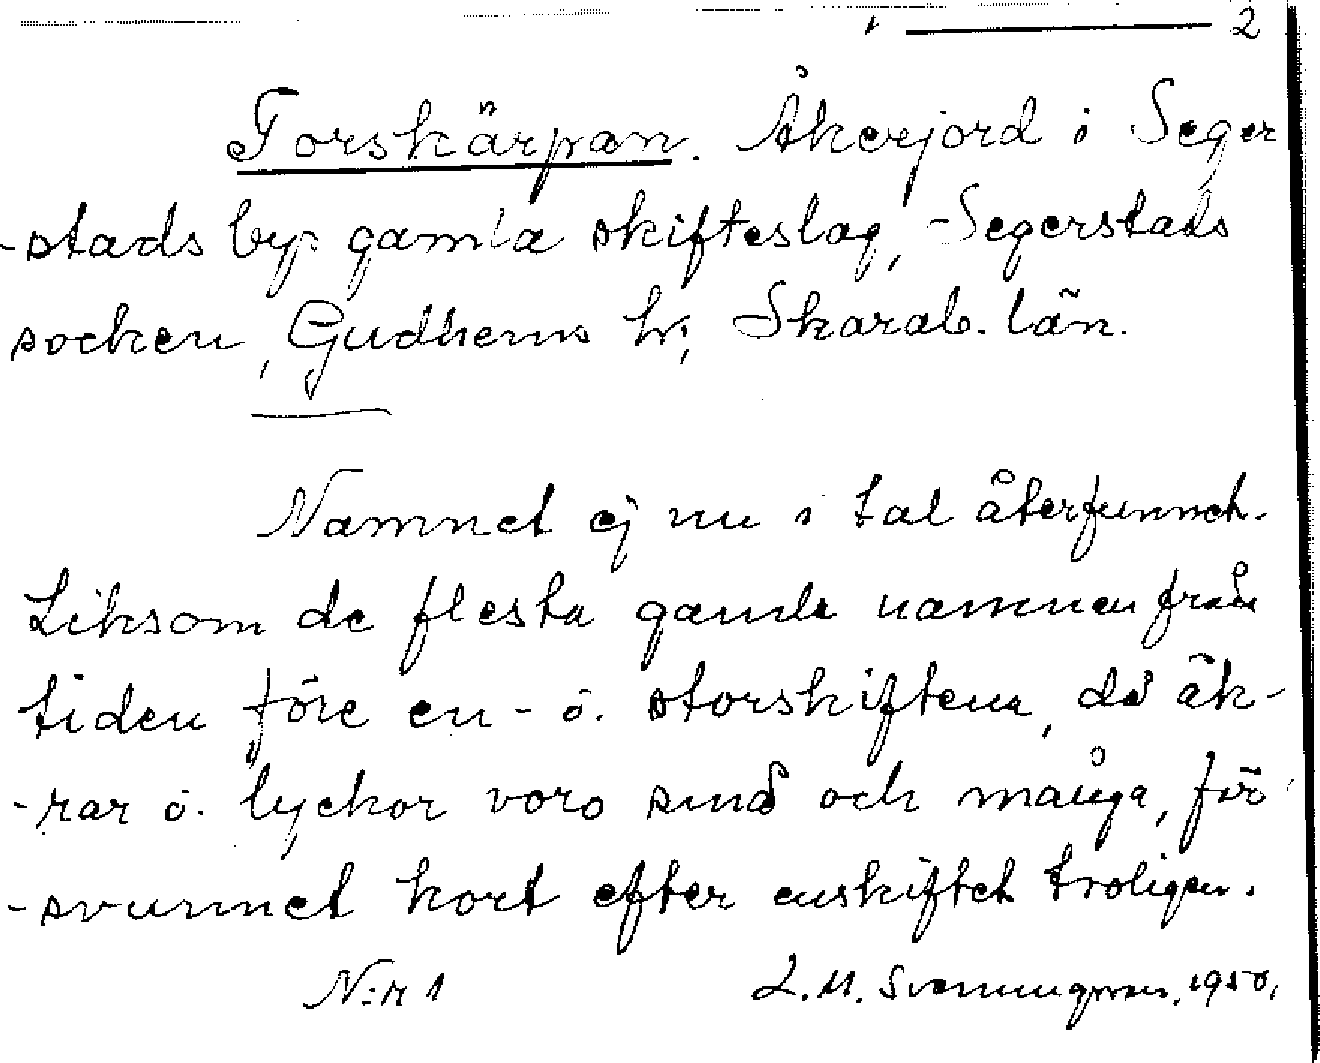 2
Torskärpan. Åkerjord i Seger
-stads bys gamla skifteslag, Segerstads
socken, Gudhems hr, Skarab. län.
Namnet ej nu i tal återfunnet.
Liksom de flesta gamla namnen från
tiden före en- o. storskiftena, då åk-
-rar o. lyckor voro små och många, för
-svunnet kort efter enskiftet troligen.
N:r 1 L.M. Svenningsson. 1950.